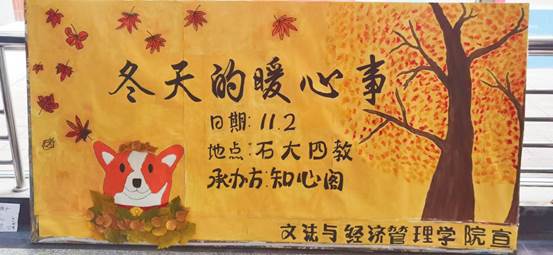 冬天的暖心事
日期: 11.2
地点: 石大四教
承办方: 知心阁
文法与经济管理学院宣